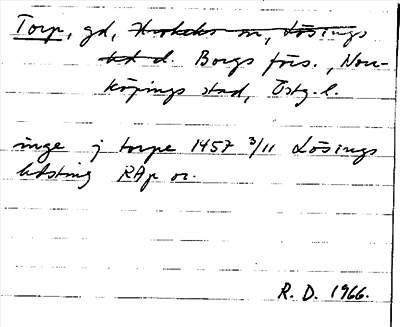 Torp, gd, Krokeks sn, Lösings
hd d. Borgs förs., Norr-
köpings stad, Östg. l.
inge j torpe 1457 3/11 Lösings
hdsting RAp or.
R. D. 1966.